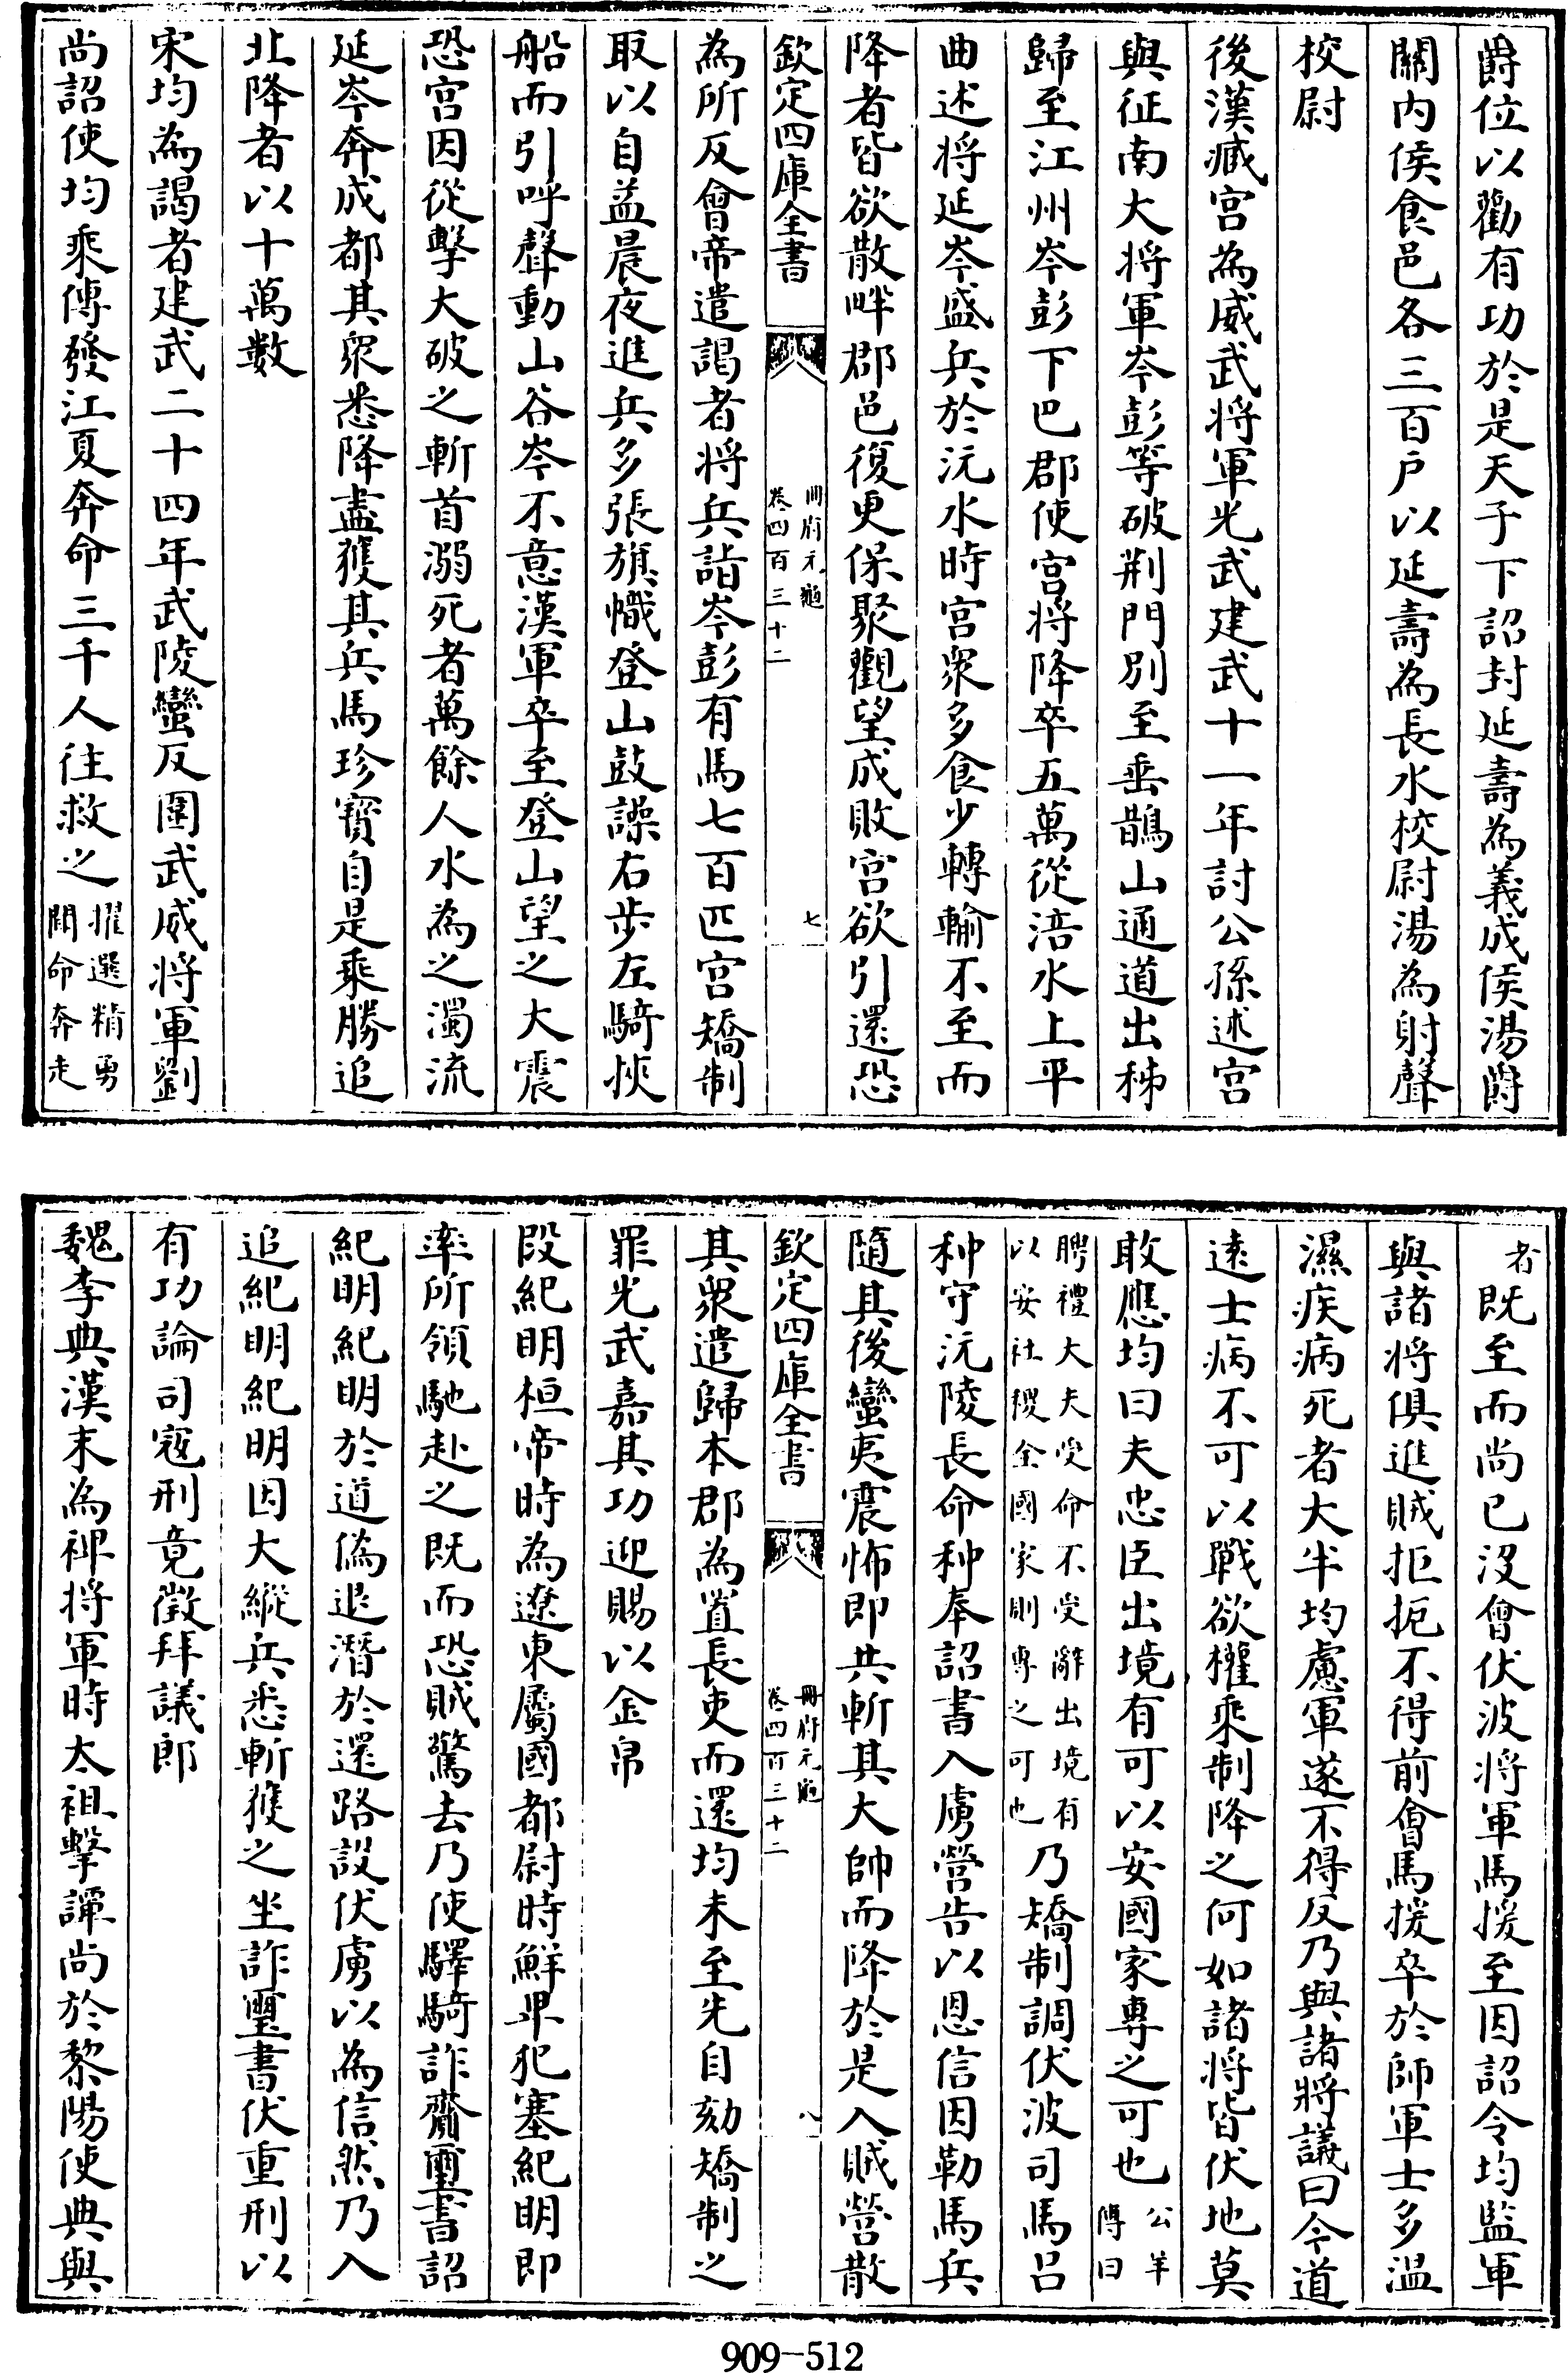 爵位以勸有功於是天子下詔封延壽為義成侯湯爵
關內侯食邑各三百户以延壽為長水校尉湯為射聲
校尉
後漢臧宫為威武将軍光武建武十一年討公孫述宫
與征南大将軍岑彭等破荆門別至垂鵲山通道出秭
歸至江州岑彭下巴郡使宫将降卒五萬從涪水上平
曲述将延岑盛兵於沅水時宫衆多食少轉輸不至而
降者皆欲散畔郡邑復更保聚觀望成敗宫欲引還恐
欽定四庫全書
冊府元龜
卷四百三十二
七
為所反會帝遣謁者将兵詣岑彭有馬七百匹宫矯制
取以自益晨夜進兵多張旗幟登山鼓譟右步左騎挾
船而引呼聲動山谷岑不意漢軍卒至登山望之大震
恐宫因從擊大破之斬首溺死者萬餘人水為之濁流
延岑奔成都其衆悉降盡獲其兵馬珍寳自是乘勝追
北降者以十萬數
宋均為謁者建武二十四年武陵蠻反圍武威将軍劉
尚詔使均乘傳發江夏奔命三千人往救之擢選精勇
聞命奔走
者既至而尚已沒會伏波将軍馬援至因詔令均監軍
與諸将俱進賊拒扼不得前會馬援卒於師軍士多温
濕疾病死者大半均慮軍遂不得反乃與諸將議曰今道
遠士病不可以戰欲權乘制降之何如諸將皆伏地莫
敢應均曰夫忠臣出境有可以安國家專之可也公羊
傳曰
聘禮大夫受命不受辭出境有
以安社稷全國家則專之可也乃矯制調伏波司馬吕
种守沅陵長命种奉詔書入虜營告以恩信因勒馬兵
隨其後蠻夷震怖即共斬其大帥而降於是入賊營散
欽定四庫全書
冊府元龜
卷四百三十二
八
其衆遣歸本郡為置長吏而還均未至先自劾矯制之
罪光武嘉其功迎賜以金帛
段紀明桓帝時為遼東屬國都尉時鮮卑犯塞紀明即
率所領馳赴之既而恐賊驚去乃使驛騎詐齎璽書詔
紀明紀明於道偽退潛於還路設伏虜以為信然乃入
追紀明紀明因大縱兵悉斬獲之坐詐璽書伏重刑以
有功論司寇刑竟徵拜議郎
魏李典漢末為裨将軍時太祖擊譚尚於黎陽使典與
909-512